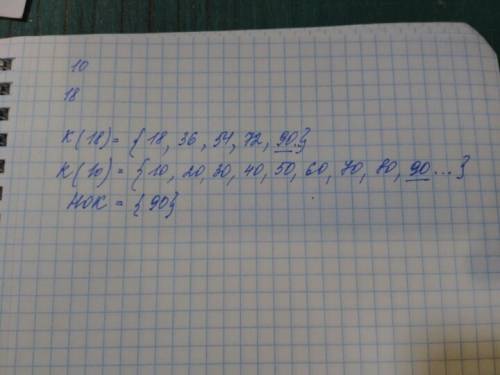 10
18
К(18) = {18, 36, 54, 72, 90.}
К(10) = {10, 20, 30, 40, 50, 60, 70, 80, 90 ...}
НОК = {90}